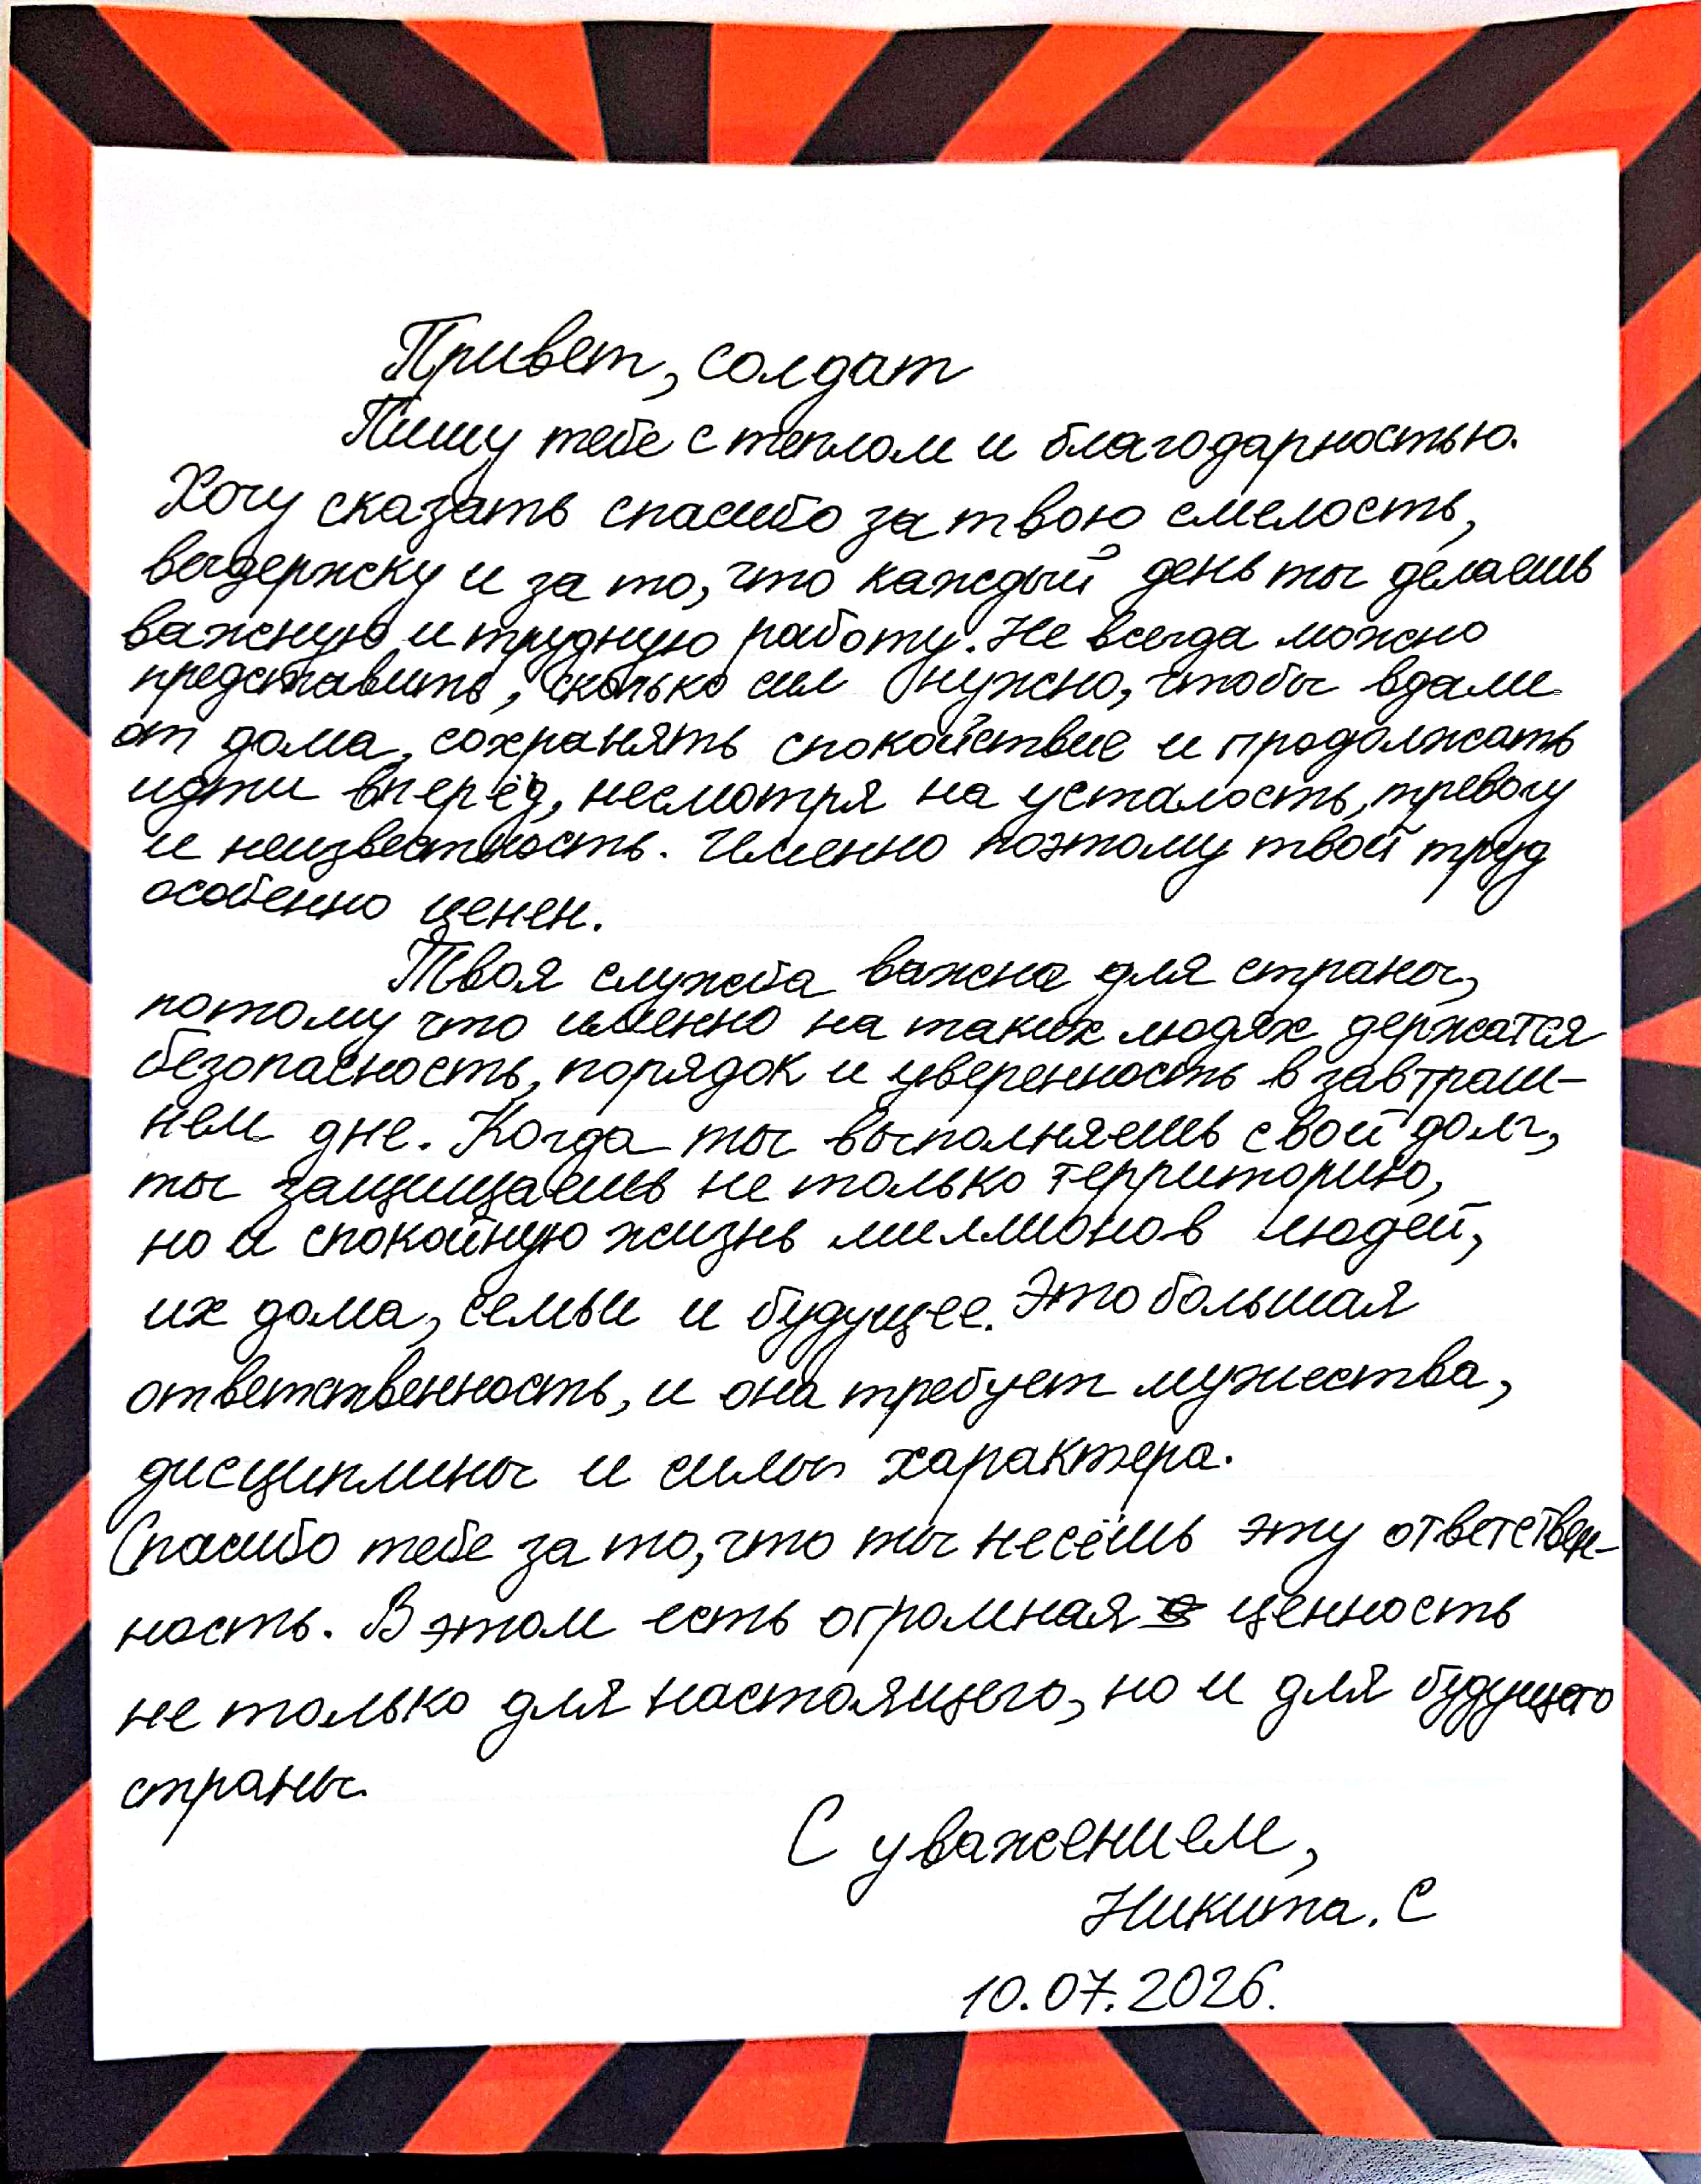 Привет, солдат
Пишу тебе с теплом и благодарностью.
Хочу сказать спасибо за твою смелость,
выдержку и за то, что каждый день ты делаешь
важную и трудную работу. Не всегда можно
представить, сколько сил нужно, чтобы вдали
от дома, сохранять спокойствие и продолжать
идти вперёд, несмотря на усталость, тревогу
и неизвестность. Именно поэтому твой труд
особенно ценен.
Твоя служба важна для страны,
потому что именно на таких людях держатся
безопасность, порядок и уверенность в завтраш-
нем дне. Когда ты выполняешь свой долг,
ты защищаешь не только территорию,
но и спокойную жизнь миллионов людей,
их дома, семьи и будущее. Это большая
ответственность, и она требует мужества,
дисциплины и силы характера.
Спасибо тебе за то, что ты несёшь эту ответствен-
ность. В этом есть огромная ценность
не только для настоящего, но и для будущего
страны.
С уважением,
Никита. С
10.07.2026.